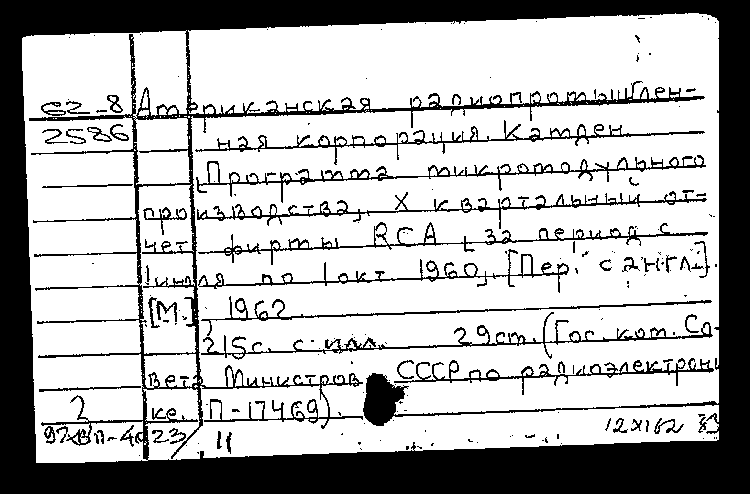 62-8 Американская радиопромышлен-
2586 ная корпорация. Камден.
Программа микромодульного
производства, X квартальный от-
чет фирмы RCA за период с
1 июля по 1 окт. 1960, [Пер. с англ.].
[М.], 1962
215с. с илл. 29см. (Гос. ком. Со-
вета Министров СССР по радиоэлектрони
2 ке. П-17469).
11 12 XI 62